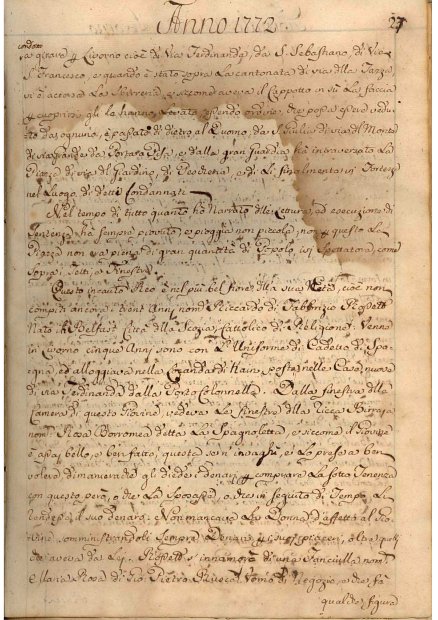 Anno 1772
27
condotto
a girare p Livorno cioè di Via Ferdinanda, da S. Sebastiano, di Via
S. Francesco, e quando è stato sopra la cantonata di via della
si è accosta la e siccome aveva il Cappotto in su la faccia
p cuoprirsi gli la hanno levata essendo ordine che possa essere vedu-
to da ognuno, è passato di dietro al Duomo, da S. Giulia di via del Monte
di via Grande da Porta a Pisa, e dalla gran Guardia ha intraversata la
Piazza di via del Giardino, di Pescheria, e di lì finalmente in Fortezza
nel Luogo di detti Condannati.
Nel tempo di tutto quanto ho narrato della Lettura, ed esecuzione di
Sentenza ha sempre piovuto, e pioggia non piccola, non p questo la
Piazza non era piena di gran quantità di Popolo, ivi spettatore, come
sopra i Tetti, e Finestre.
Questo incauto Reo è nel più bel fiore della sua Età, cioè non
compiti ancora i trent'Anni nom.e Riccardo di Fabbrizio Rossetti
Nato in Belfast Città della Scozia, Cattolico di Religione. Venne
in Livorno cinque Anni sono con l'Uniforme di Cadetto di Spa-
gna, ed alloggiava nella Locanda di posta nelle Case nuove
di via Ferdinanda dalle Colonnette. Dalla finestra della
Camera di questo Giovine vedeva le finestre della Ricca
nom.e Rosa Borromea detta la Spagnoletta, e siccome il Giovine
è assai bello, e ben fatto, questa se ne invaghì, e lo prese a ben
volere di maniera che gli diede i denari p comprare la sotto Tenenza
con questo però, o che la sposasse, o che in seguito di Tempo li
rendesse il suo denaro. Non mancava la Donna d'affetti al Gio-
vine somministrandoli sempre Denaro p i suoi piaceri, oltre quelli
che aveva da Lui. Rossetti s'innamorò di una Fanciulla nom.e
Ilaria Rosa di Gio. Pietro Uomo di Negozio, e che fa
qualche figura